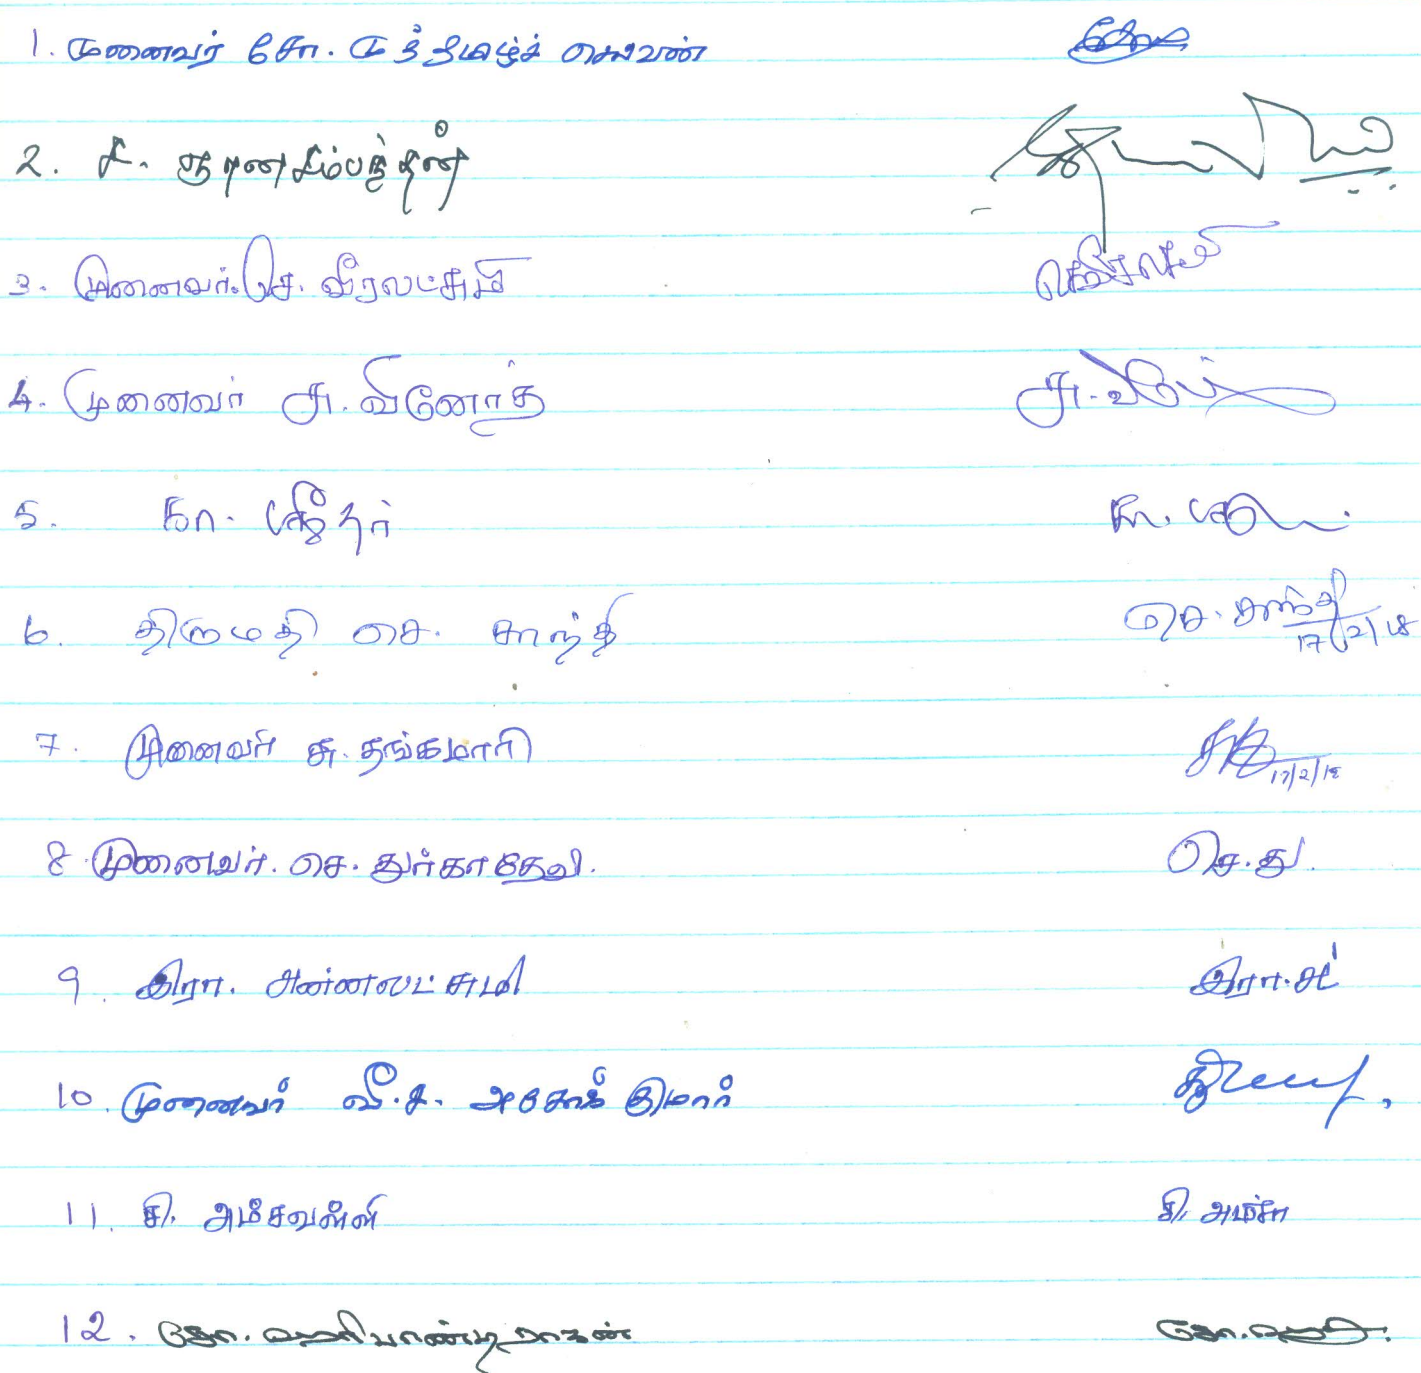 1. முனைவர் சோ. முத்தமிழ்ச் செல்வன்
2. ச. ஞானசம்பந்தன்
3. முனைவர். செ. வீரலட்சுமி
4. முனைவர் சு. வினோத் சு. வி
5. கா. ஸ்ரீதர் கா.
6. திருமதி செ. சாந்தி செ. சாந்தி
17/2/18
7. முனைவர் சு. தங்கமாரி
17/2/18
8. முனைவர். செ. துர்காதேவி. செ. து.
9. இரா. அன்னலட்சுமி இரா.
10. முனைவர் வீ. ச. அசோக் குமார்
11. சி. அம்சவள்ளி சி. அம்சா
12. கோ. ஹரிபாண்டிராஜன் கோ. ஹரி.